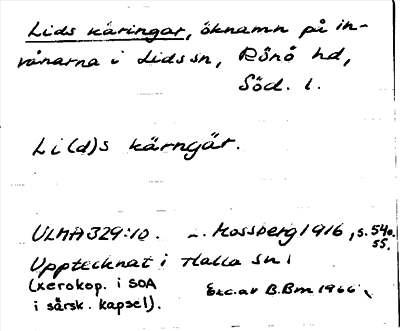 Lids käringar, öknamn på in-
vånarna i Lids sn, Rönö hd,
Söd. l.
Li(d)s kärngär.
ULMA 329:10. Mossberg 1916, s. 54o.
55.
Upptecknat i Halla sn!
(xerokop. i SOA
i särsk. kapsel).
Exc. av B.Bm 1966.